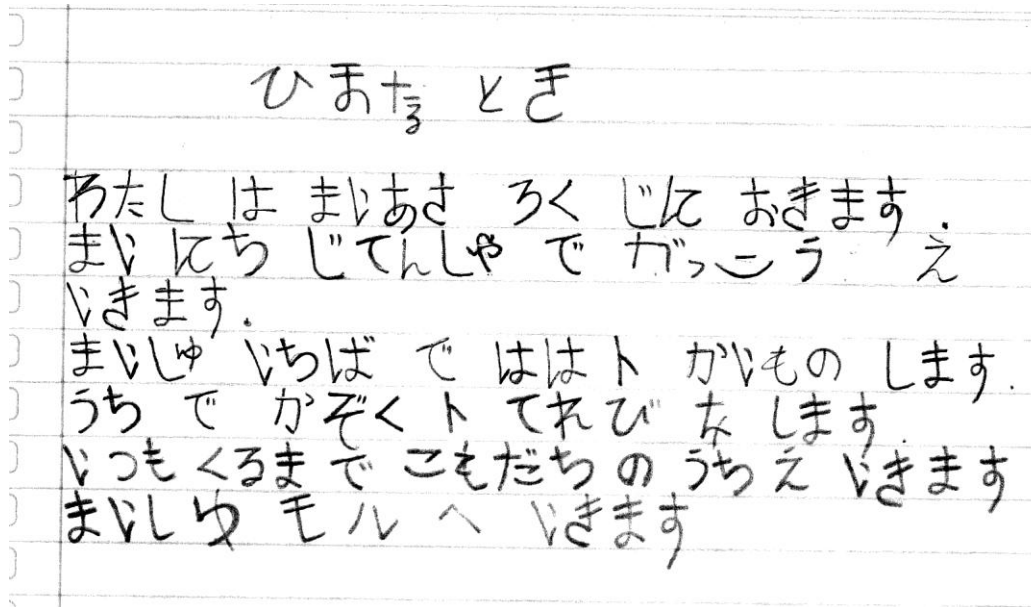 ひまなる とき
わたし は まいあさ ろく じに おきます.
まい にち じてんしゃ で がっこう え
いきます.
まいしゅ いちば で ははト かいもの します.
うち で かぞくト てれび を します.
いつも くるまで こもだちの うち え いきます
まいしゆ モル へ いきます